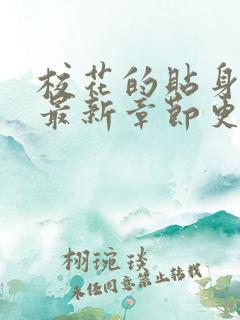 校花的贴身
最新章节史
栩琬琰
未经同意禁止转载